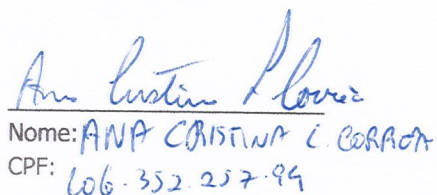 Ana Cristina L Correa
Nome: ANA CRISTINA L. CORREA
CPF: 606.352.257-94